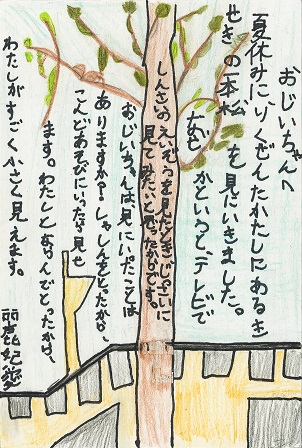 おじいちゃんへ
夏休みに、りくぜんたかたしにあるき
せきの一本松を見にいきました。
なぜかというと、テレビで
しんさいのえいぞうを見たときじっさいに
見てみたいと思ったからです。
おじいちゃんは、見にいったことは
ありますか?しゃしんをとったから、
こんどあそびにいったら見せ
ます。わたしとならんでとったから、
わたしがすごく小さく見えます。